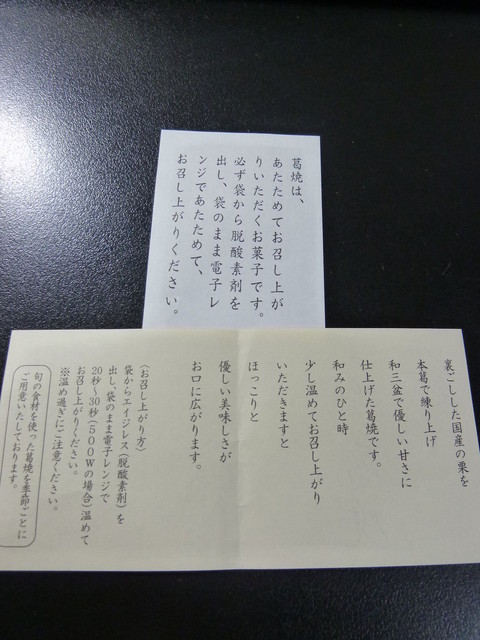 葛焼は、
あたためてお召し上が
りいただくお菓子です。
必ず袋から脱酸素剤を
出し、袋のまま電子レ
ンジであたためて、
お召し上がりください。
裏ごしした国産の栗を
本葛で練り上げ
和三盆で優しい甘さに
仕上げた葛焼です。
和みのひと時
少し温めてお召し上がり
いただきますと
ほっこりと
優しい美味しさが
お口に広がります。
〈お召し上がり方〉
袋からエイジレス(脱酸素剤)を
出し、袋のまま電子レンジで
20秒〜30秒(500Wの場合)温めて
お召し上がりください。
※温め過ぎにご注意ください。
旬の食材を使った葛焼を季節ごとに
ご用意いたしております。